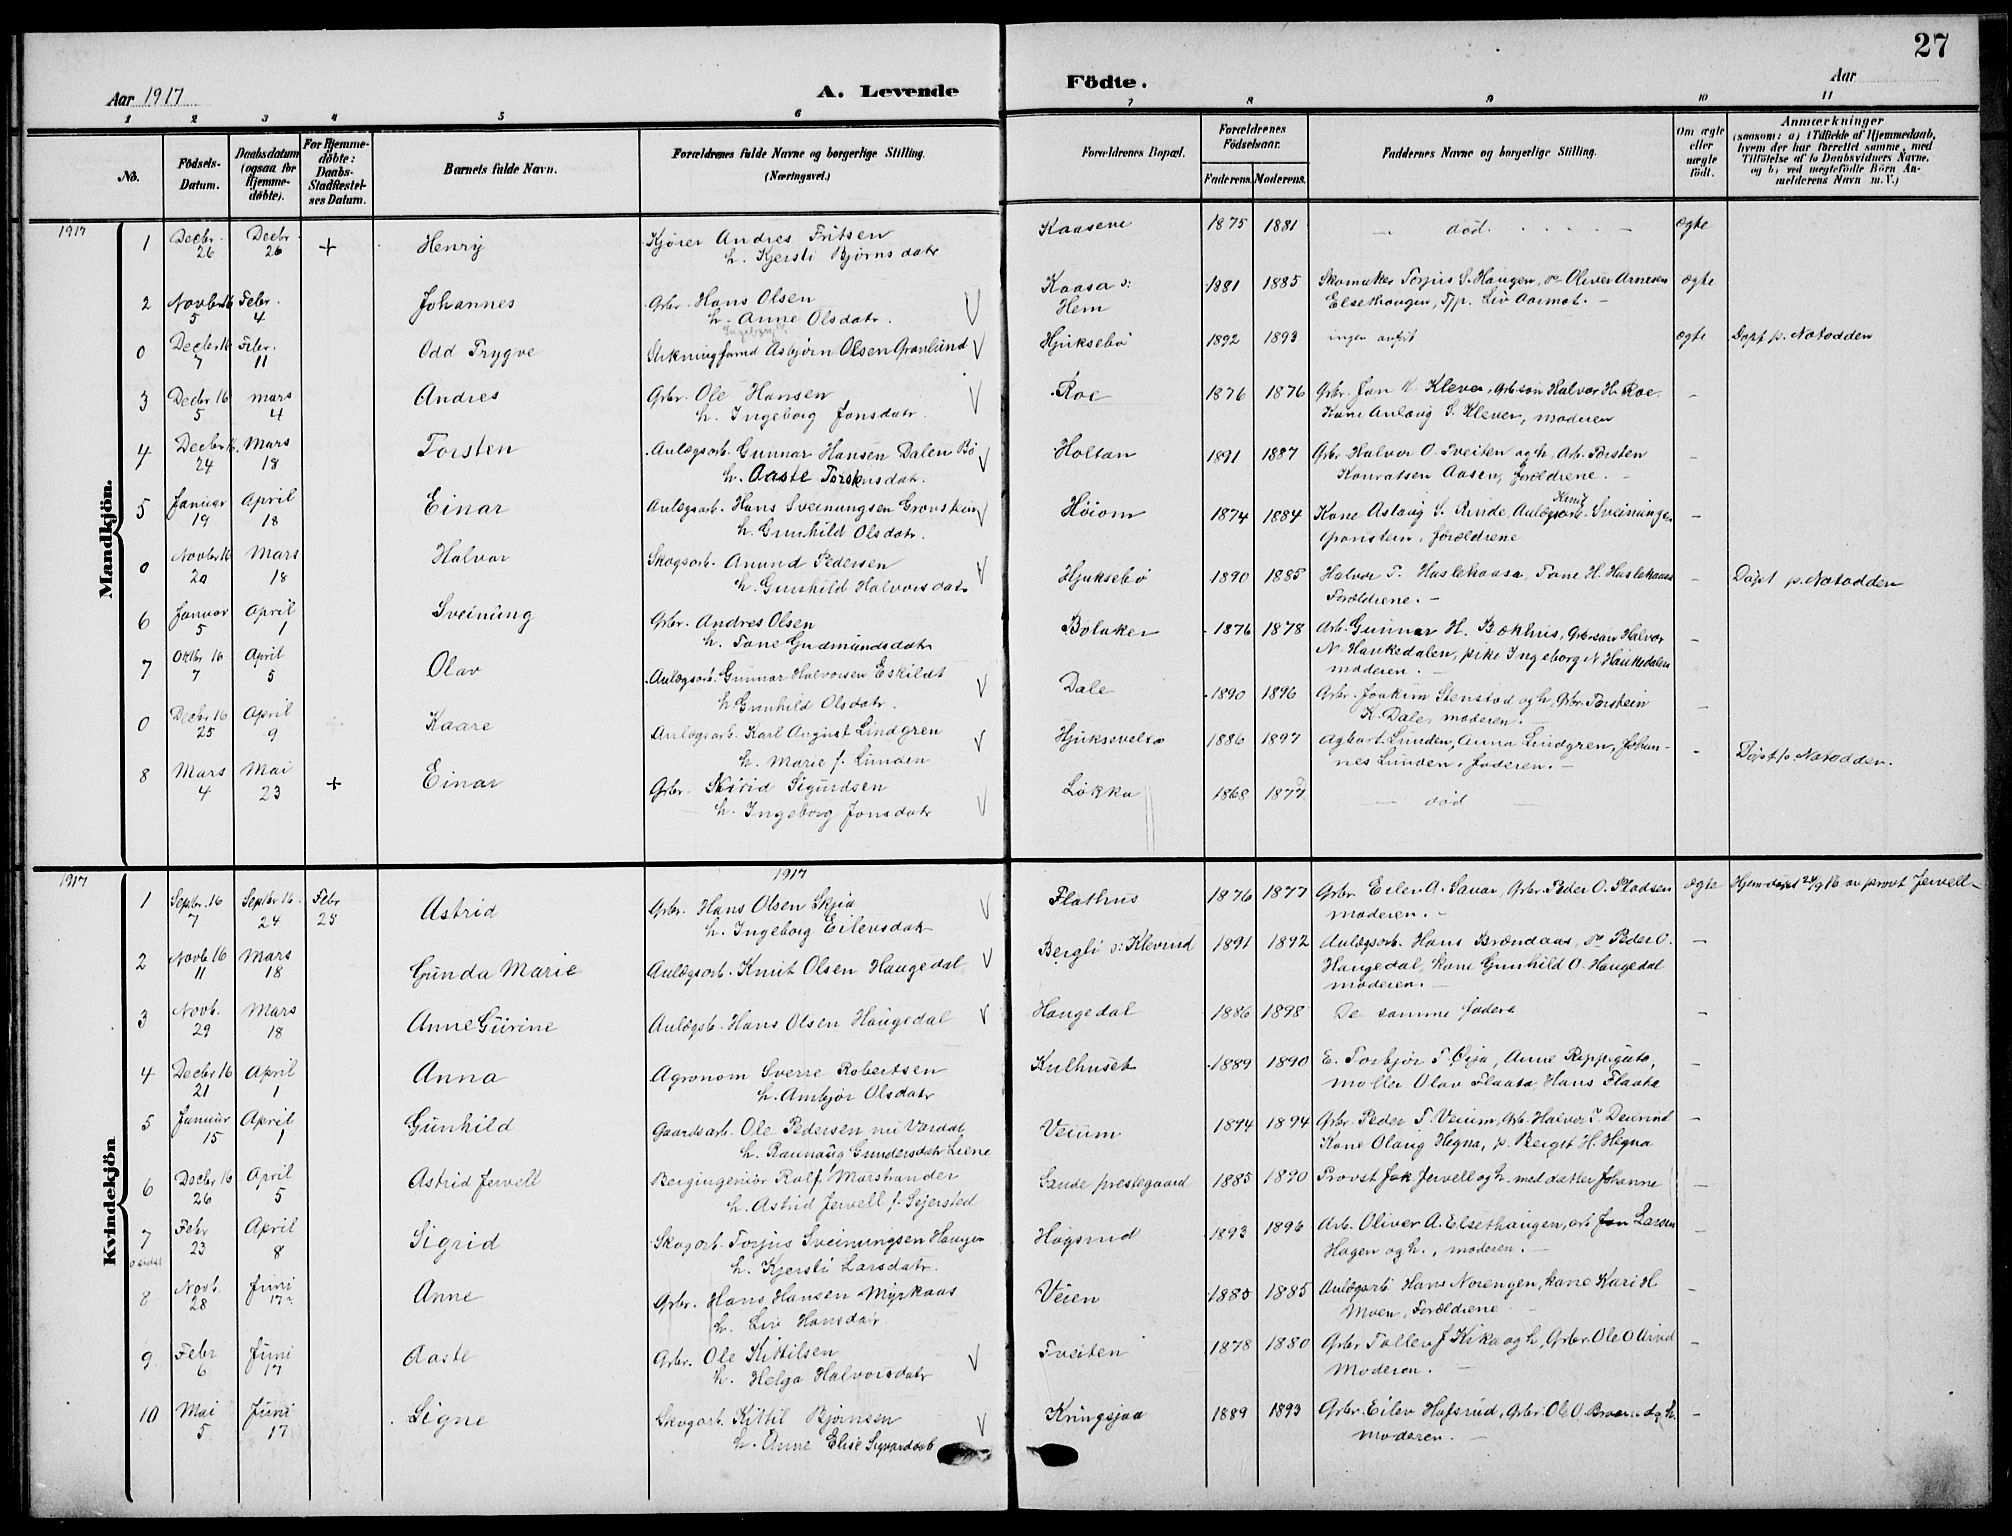 27
Aar 1917
A. Levende
Födte.
Aar
1 2 3 4 5 6 7 8 9 10 11
No.
Födsels-Datum.
Daabsdatum (ogsaa for Hjemme-döbte).
For Hjemme-döbte: Daabs-Stadfæstel-ses Datum.
Barnets fulde Navn.
Forældrenes fulde Navne og borgerlige Stilling. (Næringsvei.)
Forældrenes Bopæl.
Forældrenes Födselsaar.
Faderens. Moderens.
Faddernes Navne og borgerlige Stilling.
Om ægte eller uægte födt.
Anmærkninger (saasom: a) i Tilfælde af Hjemmedaab, hvem der har forrettet samme, med Tilföielse af to Daabsvidners Navne, og b) ved uægtefödte Börn An-melderens Navn m. V.)
Mandkjön.
1917
1 Decbr. 26 Decbr. 26 + Henry Kjører Andres Fritsen
h. Kjersti Bjørnsdatr Kaasene 1875 1881 — død. — ægte
2 Novbr 16 5 Febr. 4 Johannes Grbr. Hans Olsen
h. Anne Olsdatr. Kaasa s: Hem 1881 1885 Skomaker Torjus S. Haugen, Oliver Arnesen
Elsethaugen, Liv Aamot. — ægte
0 Decbr 16 7 Febr. 11 Odd Trygve Asbjørn Olsen Granlund Hjuksebø 1892 1893 ingen anført ægte Døpt p. Notodden
3 Decbr 16 5 mars 4 Andres Grbr. Ole Hansen
h. Ingeborg Jonsdatr. Roe 1876 1876 Grbr. Jon Klever, Grb.søn Halvor H. Roe
Kone Anlaug S. Klever, moderen —
4 Decbr 16. 24 Mars 18 Torsten Anlægsarb. Gunnar Hansen Dalen Bø
h. Aaste Torstensdatr. Holtan 1891 1887 Grbr Halvor O. Tveiten og h. Arb. Torsten
Konratsen Aasen, forældrene. — —
5 Januar 19 April 18 Einar Anlægsarb. Hans Sveinungsen Gronstein
h. Gunhild Olsdatr. Høiom 1874 1884 Kone Aslaug S. Rinde, Anlægsarb. Knut Sveinungsen
Gronstein, forældrene —
0 Novbr 16 20 Mars 18 Halvor Skogsarb. Anund Pedersen
h. Gunhild Halvorsdatr Hjuksebø 1890 1885 Halvor T. Haslekaasa, Tone H. Haslekaasa
Forældrene. — — Døpt p. Notodden
6 Januar 5 April 1 Sveinung Grbr. Andres Olsen
h. Tone Gudmundsdatr Bolaker 1876 1878 Arb. Gunnar H. Bakhus, Grb.søn Halvor
N. Haukedalen, pike Ingeborg N Haukedalen
moderen. — —
7 Oktbr 16 7 April 5 Olav Anlægsarb. Gunnar Halvorsen Eskildt
h Gunhild Olsdatr. Dale 1890 1896 Grbr. Joakim Stenstad og h, Grbr. Torstein
K. Dale, moderen. — —
0 Decbr 16 25 April 9 Kaare Anlægsarb. Karl August Lindgren
h. Marie f. Lunden Hjuksevelta 1886 1897 Agbart Lunden, Anna Lindgren, Johan-
nes Lunden, faderen. — — Døpt p. Notodden.
8 Mars 4 Mai 23 + Einar Grbr. Sigurdsen
h. Ingeborg Jonsdatr Løkka 1868 1877 — død —
Kvindekjön
1917 1917
1 Septbr. 16 7 Septbr 16. 24 Febr 25 Astrid Grbr. Hans Olsen Skjia
h. Ingeborg Eilevsdatr Flathus 1876 1877 Grbr. Eilev A. Savar, Grbr. Peder O. Pladsen
moderen. — ægte Hjemdøpt 24/9 16 av provst Jervell —
2 Novb 16 11 Mars 18 Gunda Marie Anlægsarb. Knut Olsen Haugedal Bergli s: Klevrud 1891 1892 Anlægsarb. Hans Brændaas, Peder O.
Haugedal, kone Gunhild O. Haugedal
moderen. — —
3 Novb. 29 Mars 18 Anne Gurine Anlægsb. Hans Olsen Haugedal Haugedal 1886 1898 De samme faddere —
4 Decbr 16 21 April 1 Anna Agronom Sverre Robertsen
h. Ambjør Olsdatr Kulhuset 1889 1890 E. Torbjør T. Øija, Anne Reppeguto,
møller Olav Flaata, Hans Flaata —
5 Januar 15 April 1 Gunhild Gaardsarb. Ole Pedersen
h. Rannaug Gundersdatr Liene Veium 1894 1894 Grbr Peder T. Veium, Arb. Halvor
Kone Olaug Hegna, p. Berget H. Hegna —
6 Decbr 16 26 April 5 Astrid Jervell Bergingeniør Rolf Marstrander
h. Astrid Jervell f. Sejersted Saude prestegaard 1885 1890 Provst Jak Jervell og h. med datter Johanne —
7 Febr 23 April 8 Sigrid Skogarb. Torjus Sveinungsen Haugen
h. Kjersti Larsdatr. Høgsrud 1893 1896 Arb. Oliver A. Elsethaugen, arb Jon Larsen
Hagen og h., moderen. — —
8 Novb. 28 Juni 17 Anne Grbr. Hans Hansen Myrkaas
h. Liv Hansdatr Veien 1885 1885 Anlægarb Hans Norengen, kone Kari H
Moen, Forældrene —
9 Febr 6 Juni 17 Aaste Grbr. Ole Kittilsen
h. Helga Halvorsdatr Tveiten 1878 1880 Grbr Tollev J Kika og h, Grbr. Ole O
moderen. — —
10 Mai 5 Juni 17 Signe Skogarb. Kittil Bjørnsen
h. Anne Elise Kringsjaa 1889 1893 Grbr. Eilev Hafsrud, Grbr. Ole O og h.
moderen. — —